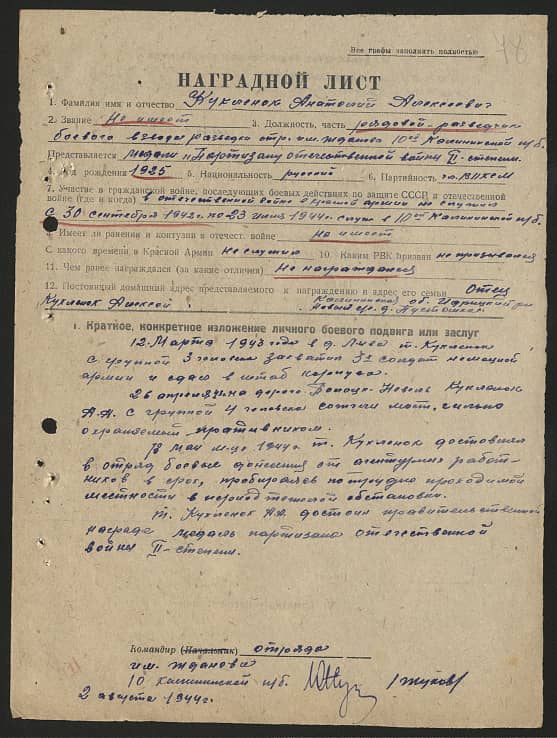 78
Все графы заполнять полностью
НАГРАДНОЙ ЛИСТ
1. Фамилия имя и отчество Кухленок Анатолий Алексеевич
2. Звание Не имеет 3. Должность, часть рядовой-разведчик
боевого взвода разведки отр. им. Жданова 10ой Калининской п/б.
Представляется медали "Партизану отечественной войны II-степени.
4. Год рождения 1925 5. Национальность русский 6. Партийность чл. ВЛКСМ
7. Участие в гражданской войне, последующих боевых действиях по защите СССР и отечественной
войне (где и когда) в отечественной войне в Красной армии не служил
с 30 сентября 1942г. по 23 июля 1944г. служ в 10ой Калининской п/б.
8. Имеет ли ранения и контузии в отечест. войне Не имеет
С какого времени в Красной Армии не служил 10. Каким РВК призван не призывался
11. Чем ранее награждался (за какие отличия) Не награждался
12. Постоянный домашний адрес представляемого к награждению и адрес его семьи Отец
Кухленок Алексей Калининская об. Идрицкий р-н
д. Пустошка
1. Краткое, конкретное изложение личного боевого подвига или заслуг
12. Марта 1943 года в д. т. Кухленок
с группой 3 человека захватил 3х солдат немецкой
армии и сдал в штаб корпуса.
26 апреля на дороге Полоцк-Невель Кухленок
А.А. с группой 4 человека сожгли мост, сильно
охраняемый противником.
В мае м-це 1944г. т. Кухленок доставлял
в отряд боевые донесения от агентурных работ-
ников в срок, пробираясь по трудно проходимой
местности в период тяжелой обстановки.
т. Кухленок А.А. достоин правительственной
награды медаль партизана отечественной
войны II-степени.
Командир (Начальник) отряда
им. Жданова
10 Калининской п/б. /Жуков/
2 августа 1944г.